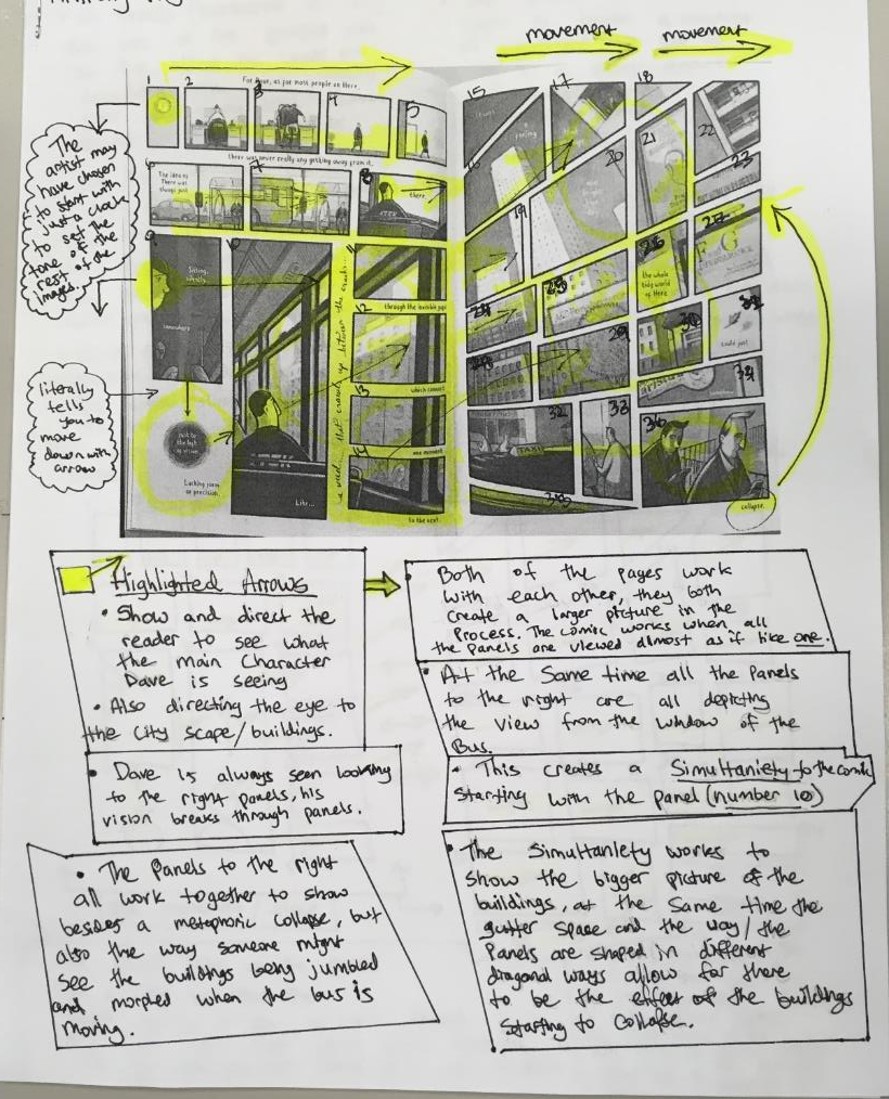 movement movement
1 2 3 4 5
For Dave, as for most people on Here,
there was never really any getting away from it.
6 7 8
The idea of
There was
always just
there
9 10 11
Sitting,
somewhere
12
through the invisible gap
13
which connect
14
one moment
to the next.
Lacking form
or precision.
Like...
15 17 18
16 20 21 22
19 23
24 25 26 27
the whole
tidy world
of Here
28 29 30 31
could just
32 33 34
TAXI
36
collapse.
The
artist may
have chosen
to start with
just a clock
to set the
tone of the
rest of the
images.
literally
tells
you to
move
down with
arrow
Highlighted Arrows
• Show and direct the
reader to see what
the main Character
Dave is seeing
• Also directing the eye to
the City scape/buildings.
• Dave is always seen looking
to the right panels, his
vision breaks through panels.
• The Panels to the right
all work together to show
besides a metaphoric collapse, but
also the way someone might
see the buildings being jumbled
and morphed when the bus is
moving.
• Both of the pages work
with each other, they both
create a larger picture in the
Process. The comic works when all
the panels are viewed almost as if like one.
• At the Same time all the Panels
to the right are all depicting
the view from the window of the
Bus.
• This creates a Simultaniety to the comic
starting with the panel (number 10)
• The Simultaniety works to
show the bigger picture of the
buildings, at the Same time the
gutter Space and the way/the
Panels are shaped in different
diagonal ways allow for there
to be the effect of the buildings
Starting to Collapse.